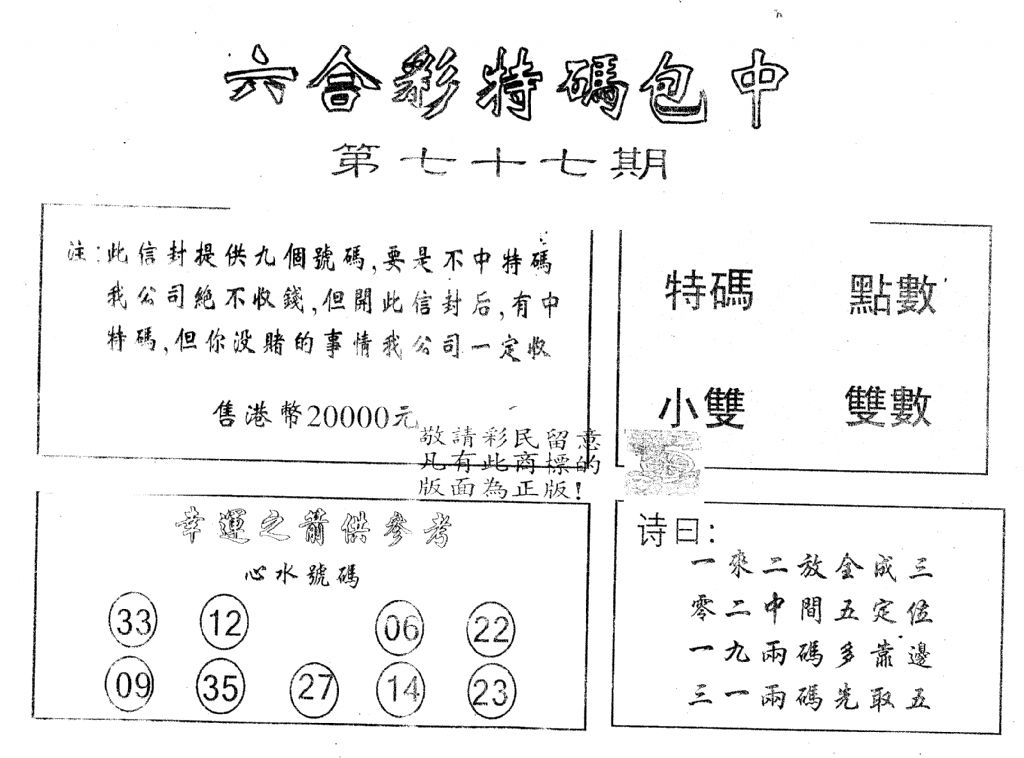 六合彩特碼包中
第七十七期
注:此信封提供九個號碼,要是不中特碼
我公司絕不收錢,但開此信封后,有中
特碼,但你没賭的事情我公司一定收
售港幣20000元
敬請彩民留意
凡有此商標的
版面為正版!
特碼 點數
小雙 雙數
幸運之箭供參考
心水號碼
33 12 06 22
09 35 27 14 23
诗曰:
一來二放全成三
零二中間五定位
一九兩碼多靠邊
三一兩碼先取五